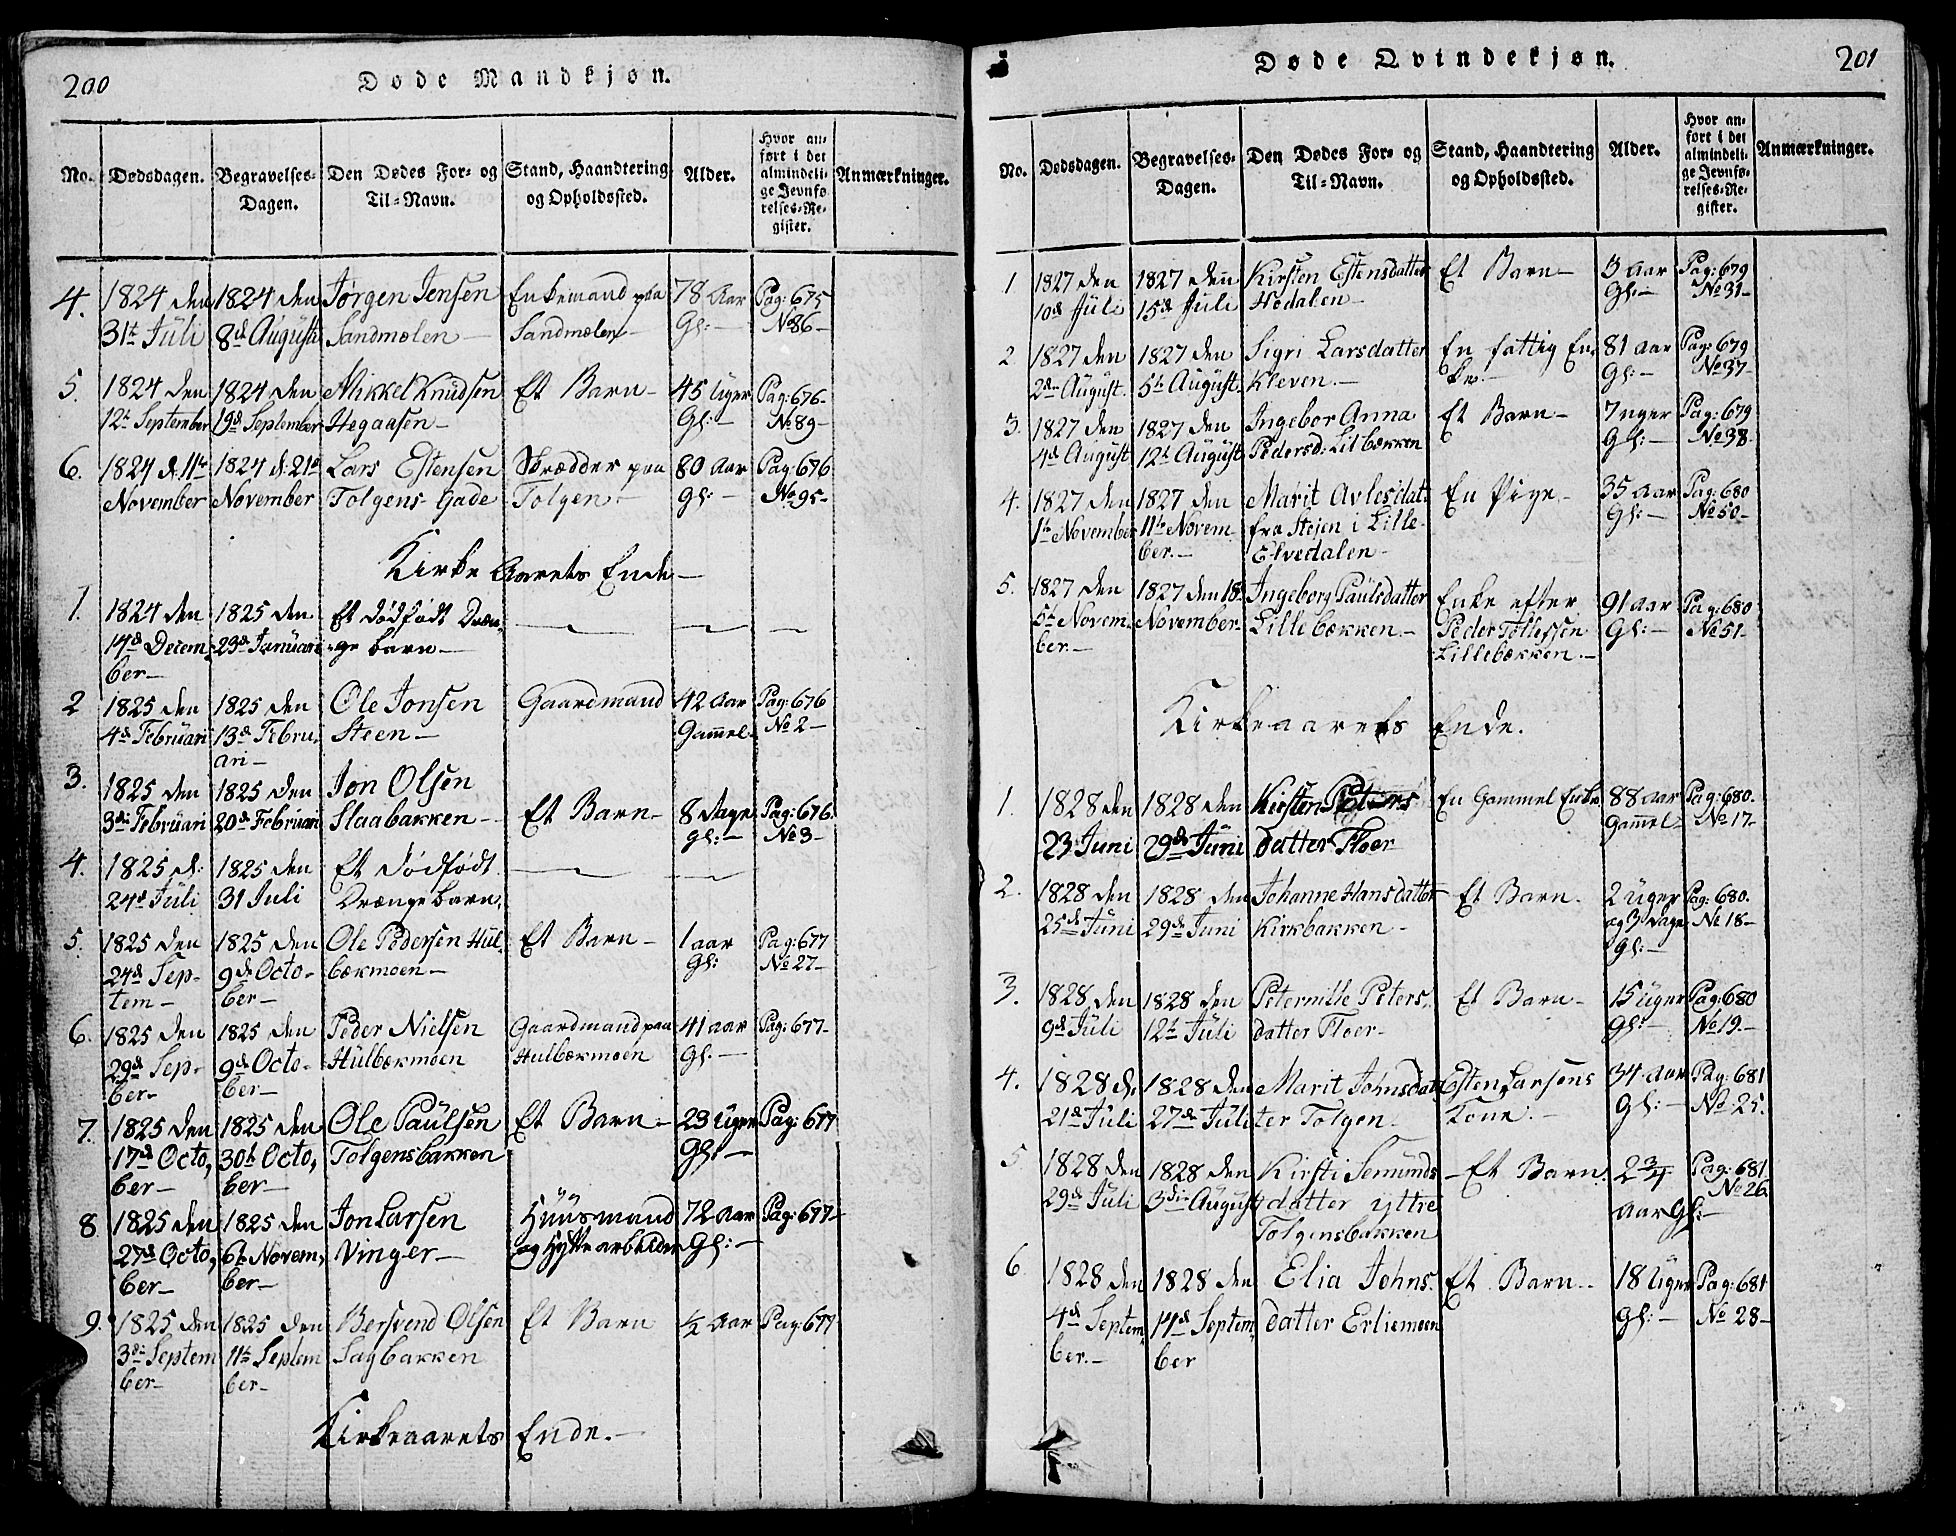 200 Døde Mandkjøn.
No. Dødsdagen. Begravelses-Dagen. Den Dødes For- og Til-Navn. Stand, Haandtering og Opholdssted. Alder. Hvor anført i det almindelige Jevnførelses-Register. Anmærkninger.
4. 1824 den 1824 den Jørgen Jensen Enkemand paa 78 Aar Pag: 675
31te Juli 8de Augusti Sandmælen Sandmælen Gl: No 86
5. 1824 den 1824 den Mikkel Knudsen Et Barn 45 Uger Pag: 676
12te September 19de September Hegaasen Gl: No 89
6. 1824 d: 11te 1824 d: 21de Lars Estensen Skrædder paa 80 Aar Pag: 676
November November Tolgens-Gade Tolgen Gl: No 95
Kirke Aarets Ende
1. 1824 den 1825 den Et dødfødt Dræn,
14de Decem, 23de Januari ge barn
ber
2 1825 den 1825 den Ole Jonsen Gaardmand 42 Aar Pag: 676
4de Februari 13de Febru, Steen Gammel No 2
ari
3. 1825 den 1825 den Jon Olsen Et Barn 8 dage Pag: 676
3die Februari 20de Februari Slaabakken gl: No 3
4. 1825 d: 1825 den Et dødfødt
24de Juli 31 Juli Drængebarn.
5. 1825 den 1825 den Ole Pedersen Hul- Et Barn 1 aar Pag: 677
24de Sep- 9de Octo- bækmoen Gl: No 27
tem ber
6. 1825 den 1825 den Peder Nielsen Gaardmand paa 41 aar Pag: 677
29de Sep- 9de Octo- Hulbækmoen Hulbækmoen gl.
ber ber
7. 1825 den 1825 den Ole Paulsen Et Barn 23 Uger Pag: 677
17de Octo, 30te Octo, Tolgensbakken Gl:
ber ber
8 1825 den 1825 den Jon Larsen Huusmand 72 Aar Pag: 677
27de Octo, 6te Novem, Vinger og Hyttearbeider Gl:
ber ber
9. 1825 den 1825 den Bersvend Olsen Et Barn ½ Aar Pag: 677
3die Septem 11te Septem Sagbakken
ber ber
Kirkeaarets Ende.
Døde Qvindekjøn. 201
No. Dødsdagen. Begravelses-Dagen. Den Dødes For- og Til-Navn. Stand, Haandtering og Opholdssted. Alder. Hvor anført i det almindelige Jevnførelses-Register. Anmærkninger.
1 1827 den 1827 den Kirsten Estensdatter Et Barn 3 Aar Pag: 679
10de Juli 15de Juli Hodalen Gl: No 31
2 1827 den 1827 den Sigri Larsdatter En fattig En- 81 aar Pag: 679
2den August. 5te August. Kleven. ke Gl: No 37
3. 1827 den 1827 den Ingebor Anna Et Barn 7 uger Pag: 679
4de August 12te August Pedersd: Lilbækken Gl: No 38
4. 1827 den 1827 den Marit Avlesdat. En Pige 35 Aar Pag: 680
1te November 11te Novem- fra Steien i Lille- Gl: No 50
ber. Elvedalen
5. 1827 den 1827 den 18. Ingeborg Paulsdatter Enke efter 91 aar Pag: 680
5te Novem. November Lillebækken. Peder Tollefsen Gl: No 51
ber. Lillebækken.
Kirkeaarets Ende.
1. 1828 den 1828 den Kirsten Peters En Gammel Enke 88 aar Pag: 680.
23 Juni 29de Juni datter Floer Gammel No 17
2. 1828 den 1828 den Johanne Hansdatter Et Barn. 2 uger Pag: 680.
25de Juni 29de Juni Kirkbakken og 3 dage No 18
Gl:
3. 1828 den 1828 den Peternille Peters, Et Barn 15 uger Pag: 680
9de Juli 12te Juli datter Floer Gl: No 19.
4. 1828 d: 1828 den Marit Johnsdat Esten Larsens 34 Aar Pag: 681
21de Juli 27de Juli ter Tolgen Kone Gl: No 25.
5 1828 den 1828 den Kirsti Semunds Et Barn. 2 3/4 Pag: 681.
29de Juli 3die August datter yttre aar Gl: No 26
Tolgensbakken
6 1828 den 1828 den Elia Johns. Et Barn 18 Uger Pag: 681
4de Septem, 14de Septem, datter Erliemoen Gl: No 28
ber. ber